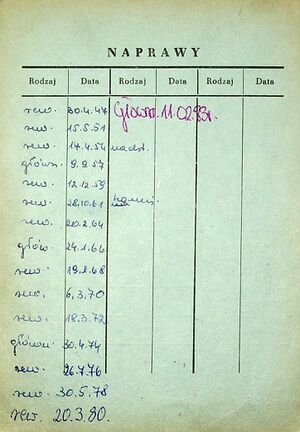 NAPRAWY
Rodzaj Data Rodzaj Data Rodzaj Data
rew. 30.4.47 Główn. 11.02.83r.
rew. 15.5.51
rew. 17.4.54 nadzt.
główn. 9.9.57
rew. 12.12.59
rew. 28.10.61
rew. 20.2.64
głów. 24.1.66
rew. 19.2.68
rew. 6.3.70
rew. 18.3.72
główn. 30.4.74
rew. 26.7.76
rew. 30.5.78
rew. 20.3.80.